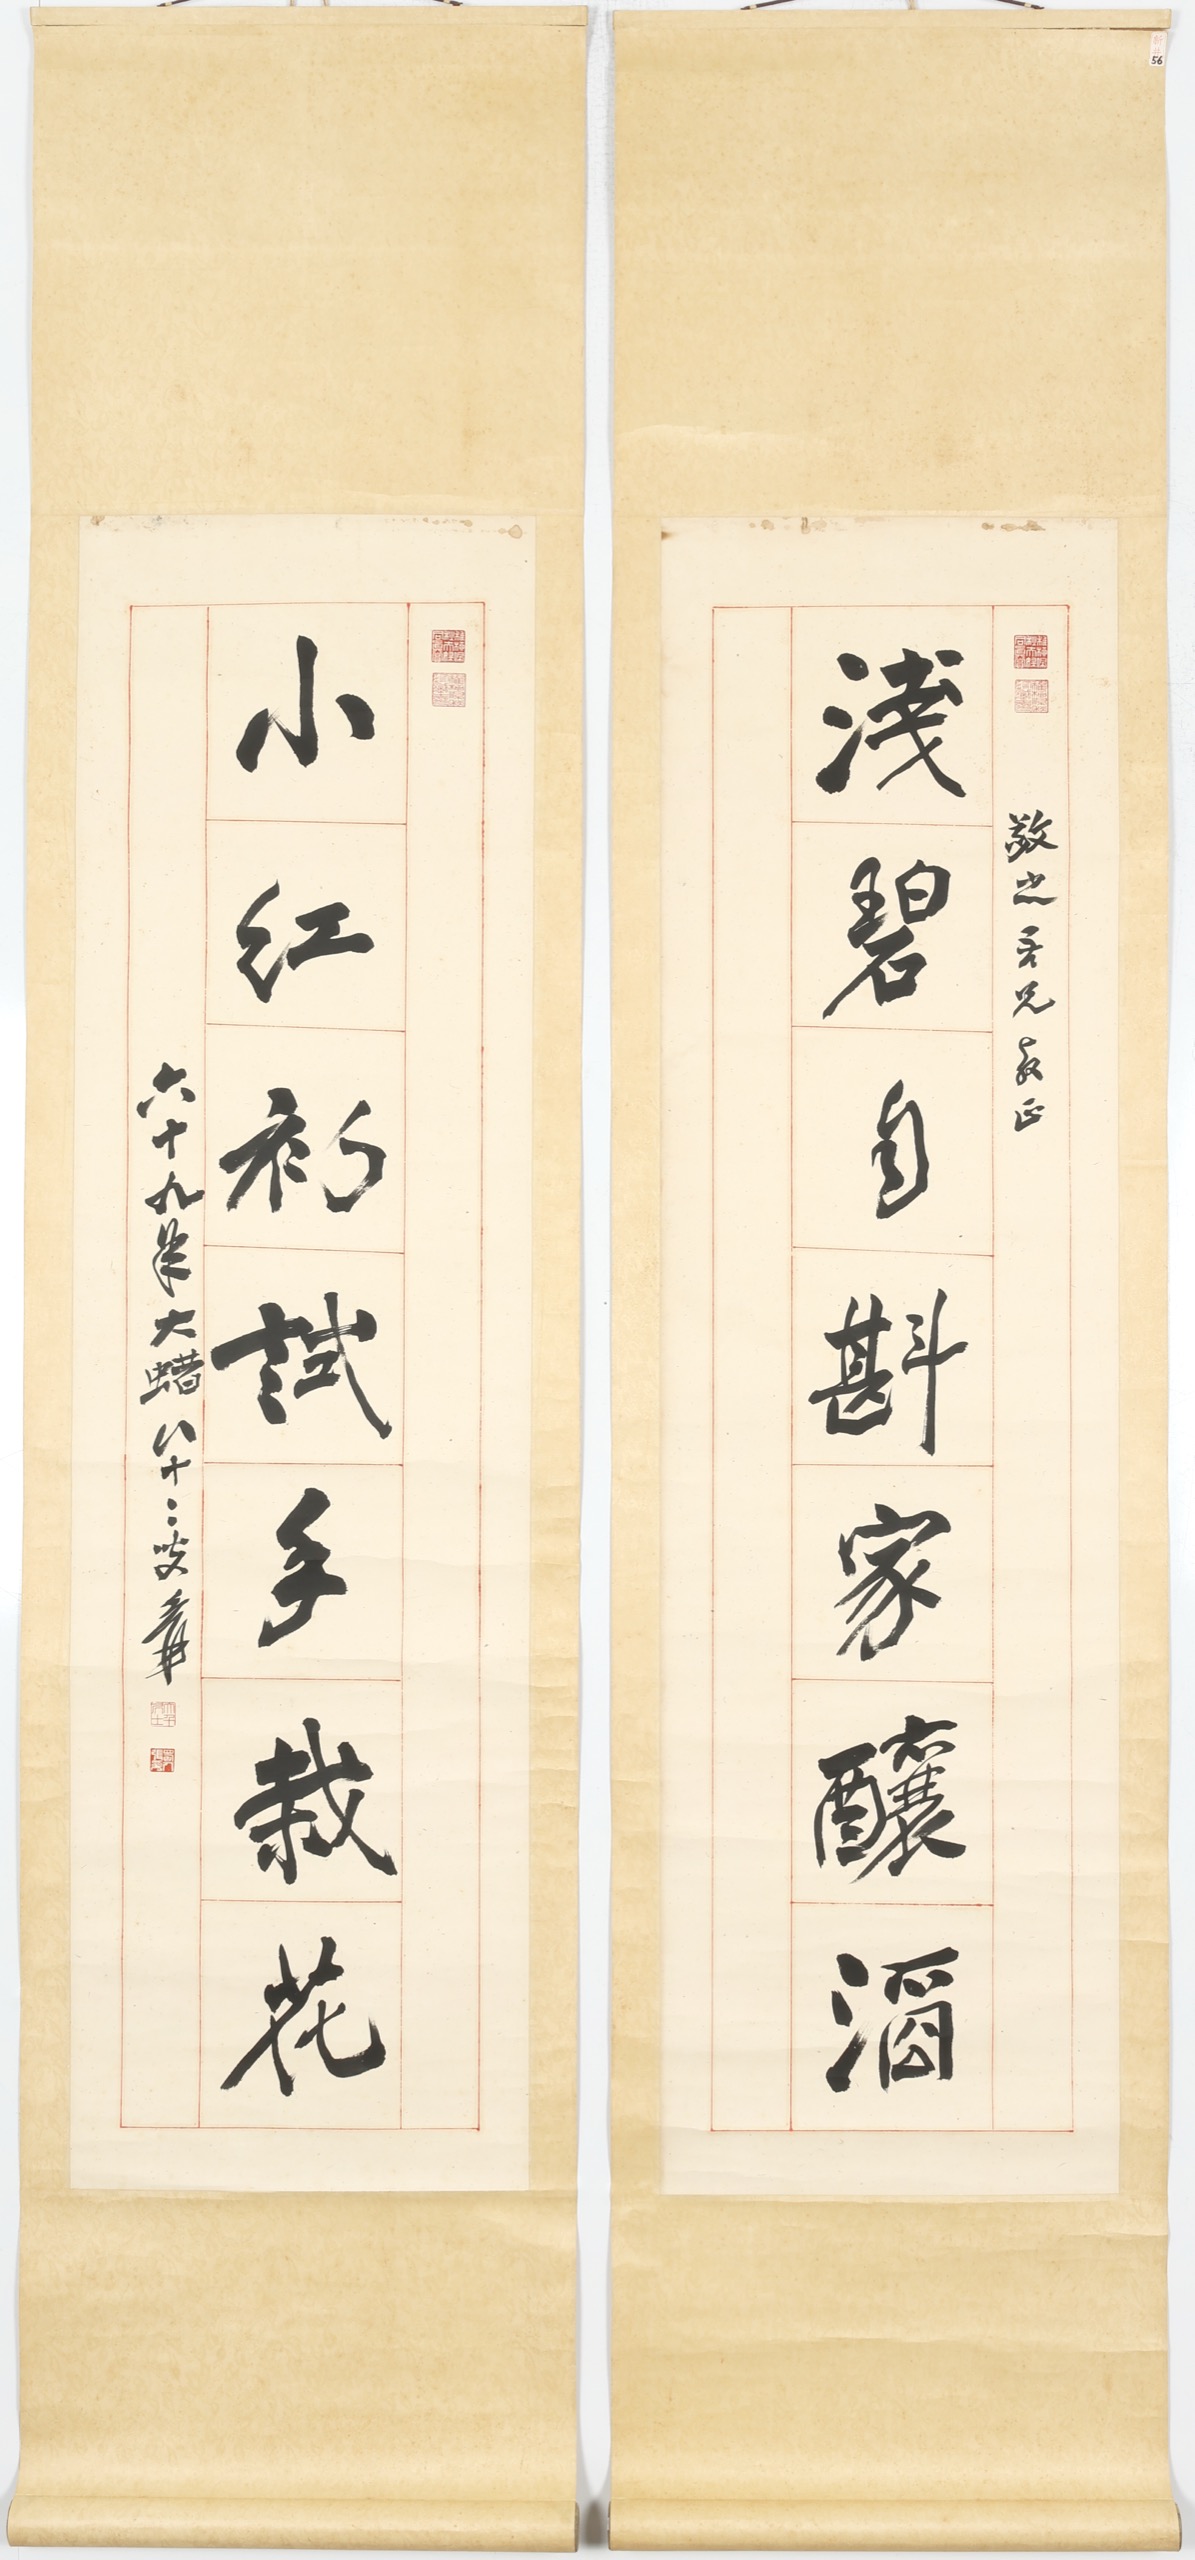 敬吾兄教正
淺碧自斟家釀酒
小紅初試手栽花
六十九年大蜡八十二叟爰
56